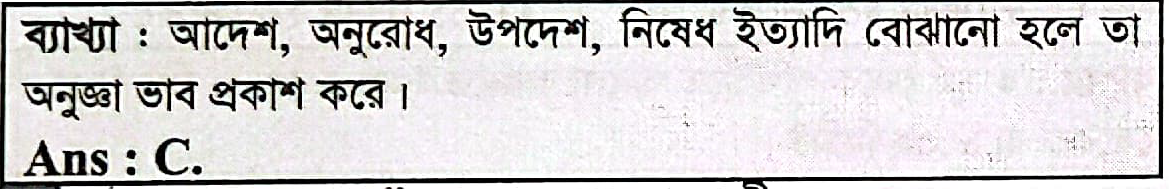 ব্যাখ্যা : আদেশ, অনুরোধ, উপদেশ, নিষেধ ইত্যাদি বোঝানো হলে তা
অনুজ্ঞা ভাব প্রকাশ করে।
Ans : C.